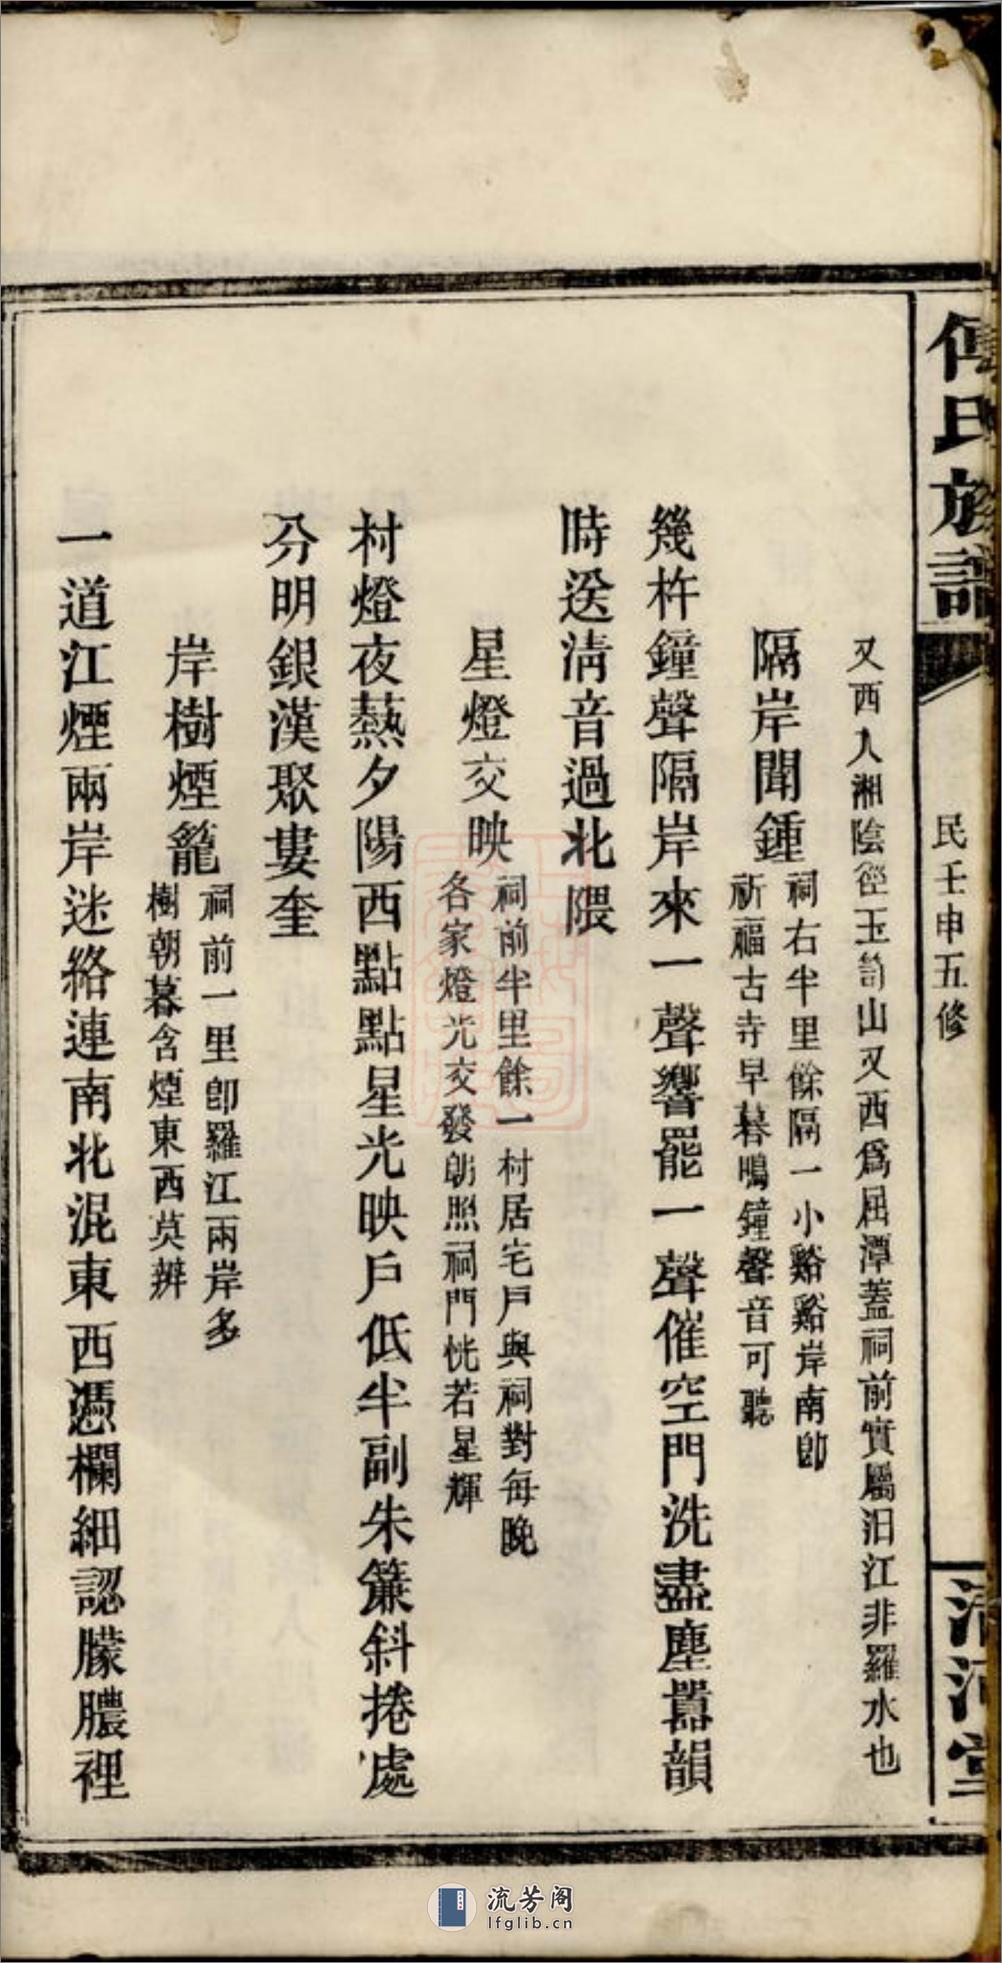 傅氏族譜
民壬申五修
清河堂
又西入湘陰徑玉笥山又西爲屈潭蓋祠前實屬汨江非羅水也
隔岸聞鍾
祠右半里餘隔一小谿谿岸南卽
祈福古寺早暮鳴鐘聲音可聽
幾杵鐘聲隔岸來一聲響罷一聲催空門洗盡塵囂韻
時送淸音過北隈
星燈交映
祠前半里餘一村居宅戸與祠對每晚
各家燈光交發朗照祠門恍若星輝
村燈夜熱夕陽西點點星光映戸低半副朱簾斜捲處
分明銀漢聚婁奎
岸樹煙籠
祠前一里卽羅江兩岸多
樹朝暮含煙東西莫辨
一道江煙兩岸迷絡連南北混東西憑欄細認朦膿裡
流芳阁
lfglib.cn